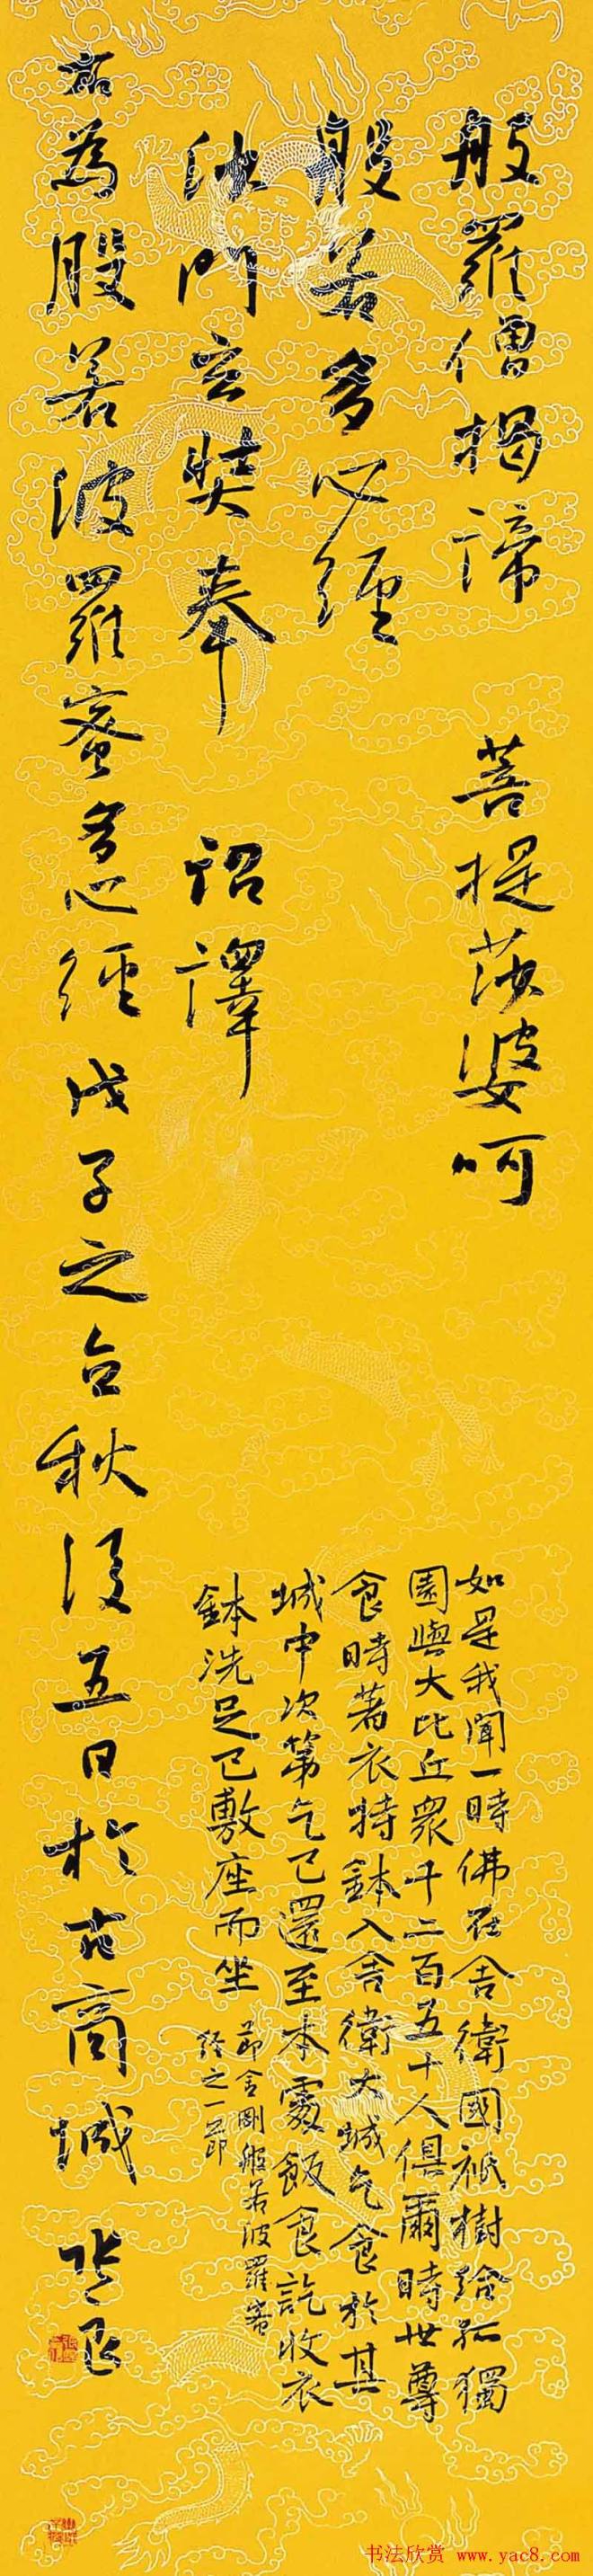 般羅僧揭諦 菩提莎婆呵
般若多心經
沙門玄奘奉 詔譯
右為般若波羅蜜多心經戊子之白秋後五日於古商城
如是我聞一時佛在舍衛國祇樹給孤獨
園與大比丘衆千二百五十人俱爾時世尊
食時著衣持鉢入舍衛大城乞食於其
城中次第乞已還至本處飯食訖收衣
鉢洗足已敷座而坐
節金剛般若波羅蜜
經之一節
书法欣赏 www.yac8.com